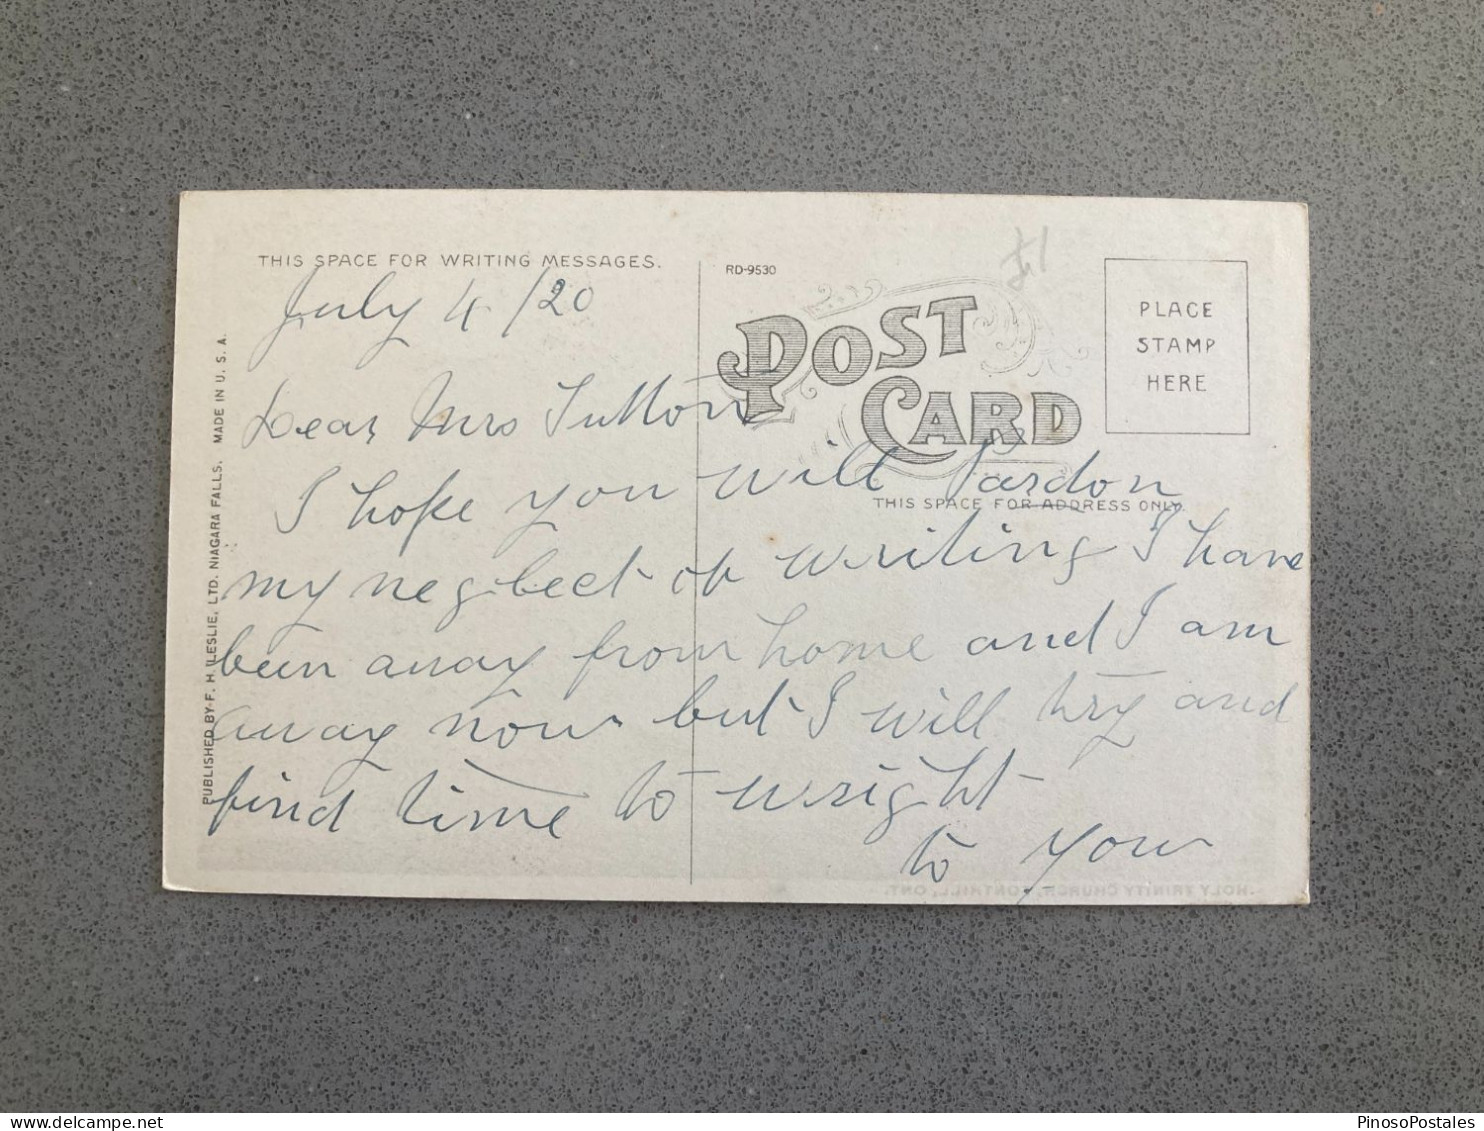 THIS SPACE FOR WRITING MESSAGES.
RD-9530
POST CARD
PLACE
STAMP
HERE
THIS SPACE FOR ADDRESS ONLY.
PUBLISHED BY F. H. LESLIE, LTD. NIAGARA FALLS. MADE IN U. S. A.
July 4/20
Dear Mrs Sutton
I hope you will Pardon
my neglect of writing I have
been away from home and I am
away now but I will try and
find time to wright
to you
HOLY TRINITY CHURCH, FONTHILL, ONT.
PinosoPostales